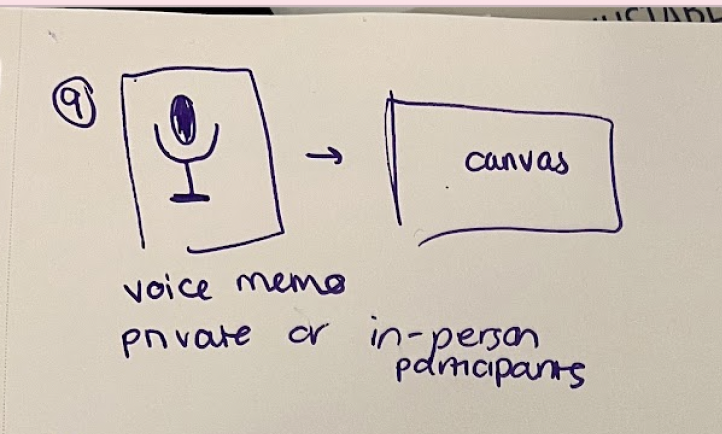 9
canvas
voice memo
private or in-person
participants